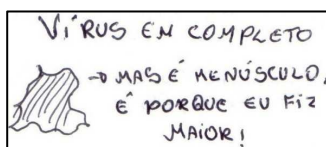 VÍRUS EM COMPLETO
→ MAS É MENÚSCULO,
É PORQUE EU FIZ
MAIOR!